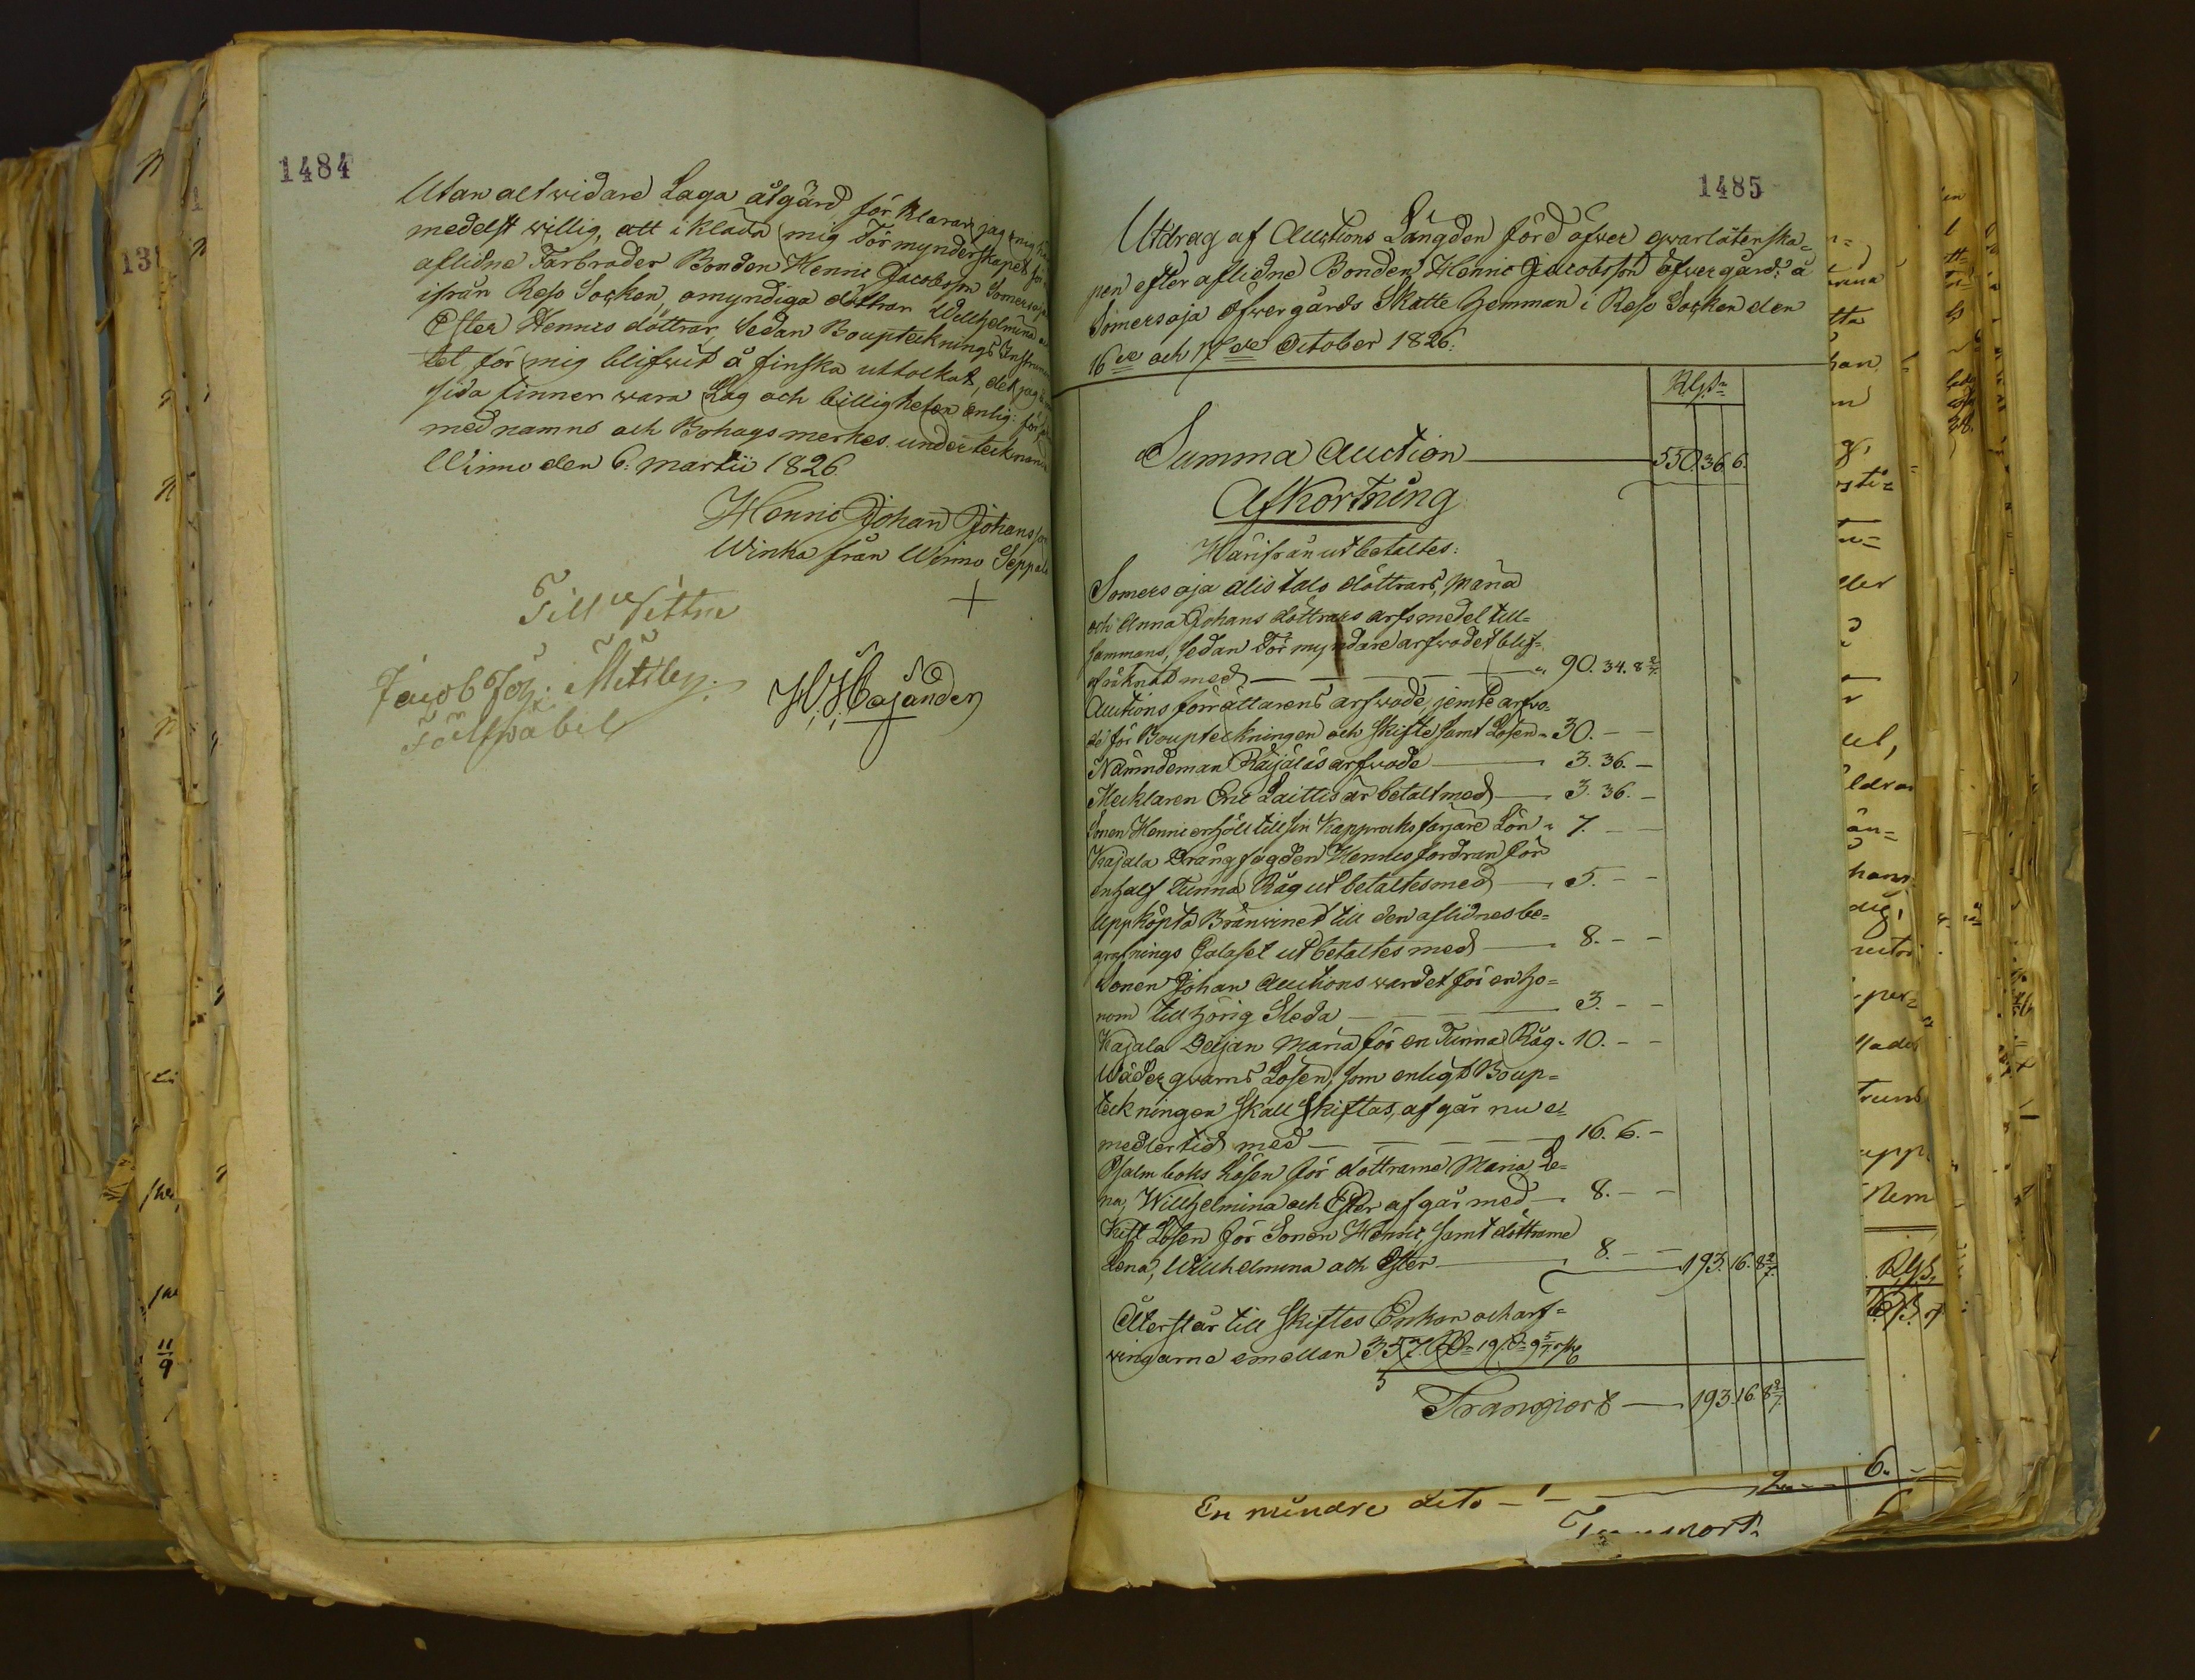 1484
Utan alt widare Laga åtgärd förklarar jag mig
medelst willig, att ikläda mig Förmynderskapet för
aflidne Farbroder Bonden Henric Jacobsson Somersoja
ifrån Reso Socken, omyndiga döttrar Willhelmina
Ester Henrics döttrar, Sedan Bouptecknings Instrumen
tet för mig blifwit å finska uttolkat, det jag
sida finner wara Lag och billigheten enlig: för
med namns och Bohags merkes undertecknande
Wirmo den 6: Martii 1826.
Henric Johan Johansson
Winka från Wirmo Seppälä
Till Vittne
Jacob Joh: Mittley.
H. H. Cajander
1485
Utdrag af Auctions Längden förd öfwer qwarlåtenska=
pen efter aflidne Bonden Henric Jacobsson öfvergård, å
Somersoja öfwergårds Skatte Hemman i Reso Socken den
16de och 17de October 1826.
Summa Auction 550 36 6.
Afkortning
Härifrån utbetaltes:
Somersoja alistalo döttrars, Maria
och Anna Johans döttrars arfsmedel till=
sammans, sedan Förmyndare arfwodet blif=
afräknat med — 90. 34. 8 2/7.
Auctions förrättarens arfwode, jemte arfwo=
de för Bouptekningen och Skifte samt Lösen 30. — —
Nämndeman Räijäläs arfwode 3. 36. —
Mecklaren Eric Laittis är betalt med 3. 36. —
Sonen Henric erhöll till sin Kapprocks färjare Lön 7. — —
Kajala Drängfogden Henrics fordran för
en half Tunna Råg utbetaltes med 5. — —
Uppköpta Bränwinet till den aflidnes be=
grafnings Calaset utbetaltes med 8. — —
Sonen Johan Auctions wärdet för en ho=
nom tillhörig Släda 3. — —
Kajala Dejan Maria för en Tunna Råg 10. — —
Wäder qwarns Lösen, som enligt Boup=
teckningen skall Skiftas, afgår nu e=
medlertid med 16. 6. —
Psalmboks Lösen för döttrarne Maria, Le=
na, Willhelmina och Ester afgår med 8. — —
Kist Lösen för Sonen Henric, samt döttrarne
Lena, Willhelmina och Ester 8. — — 193. 16. 8 2/7.
Återstår till Skiftes Enkan och arf=
wingarne emellan 357
Transport — 193 16 8 2/7.
En mindre dito
Transport.